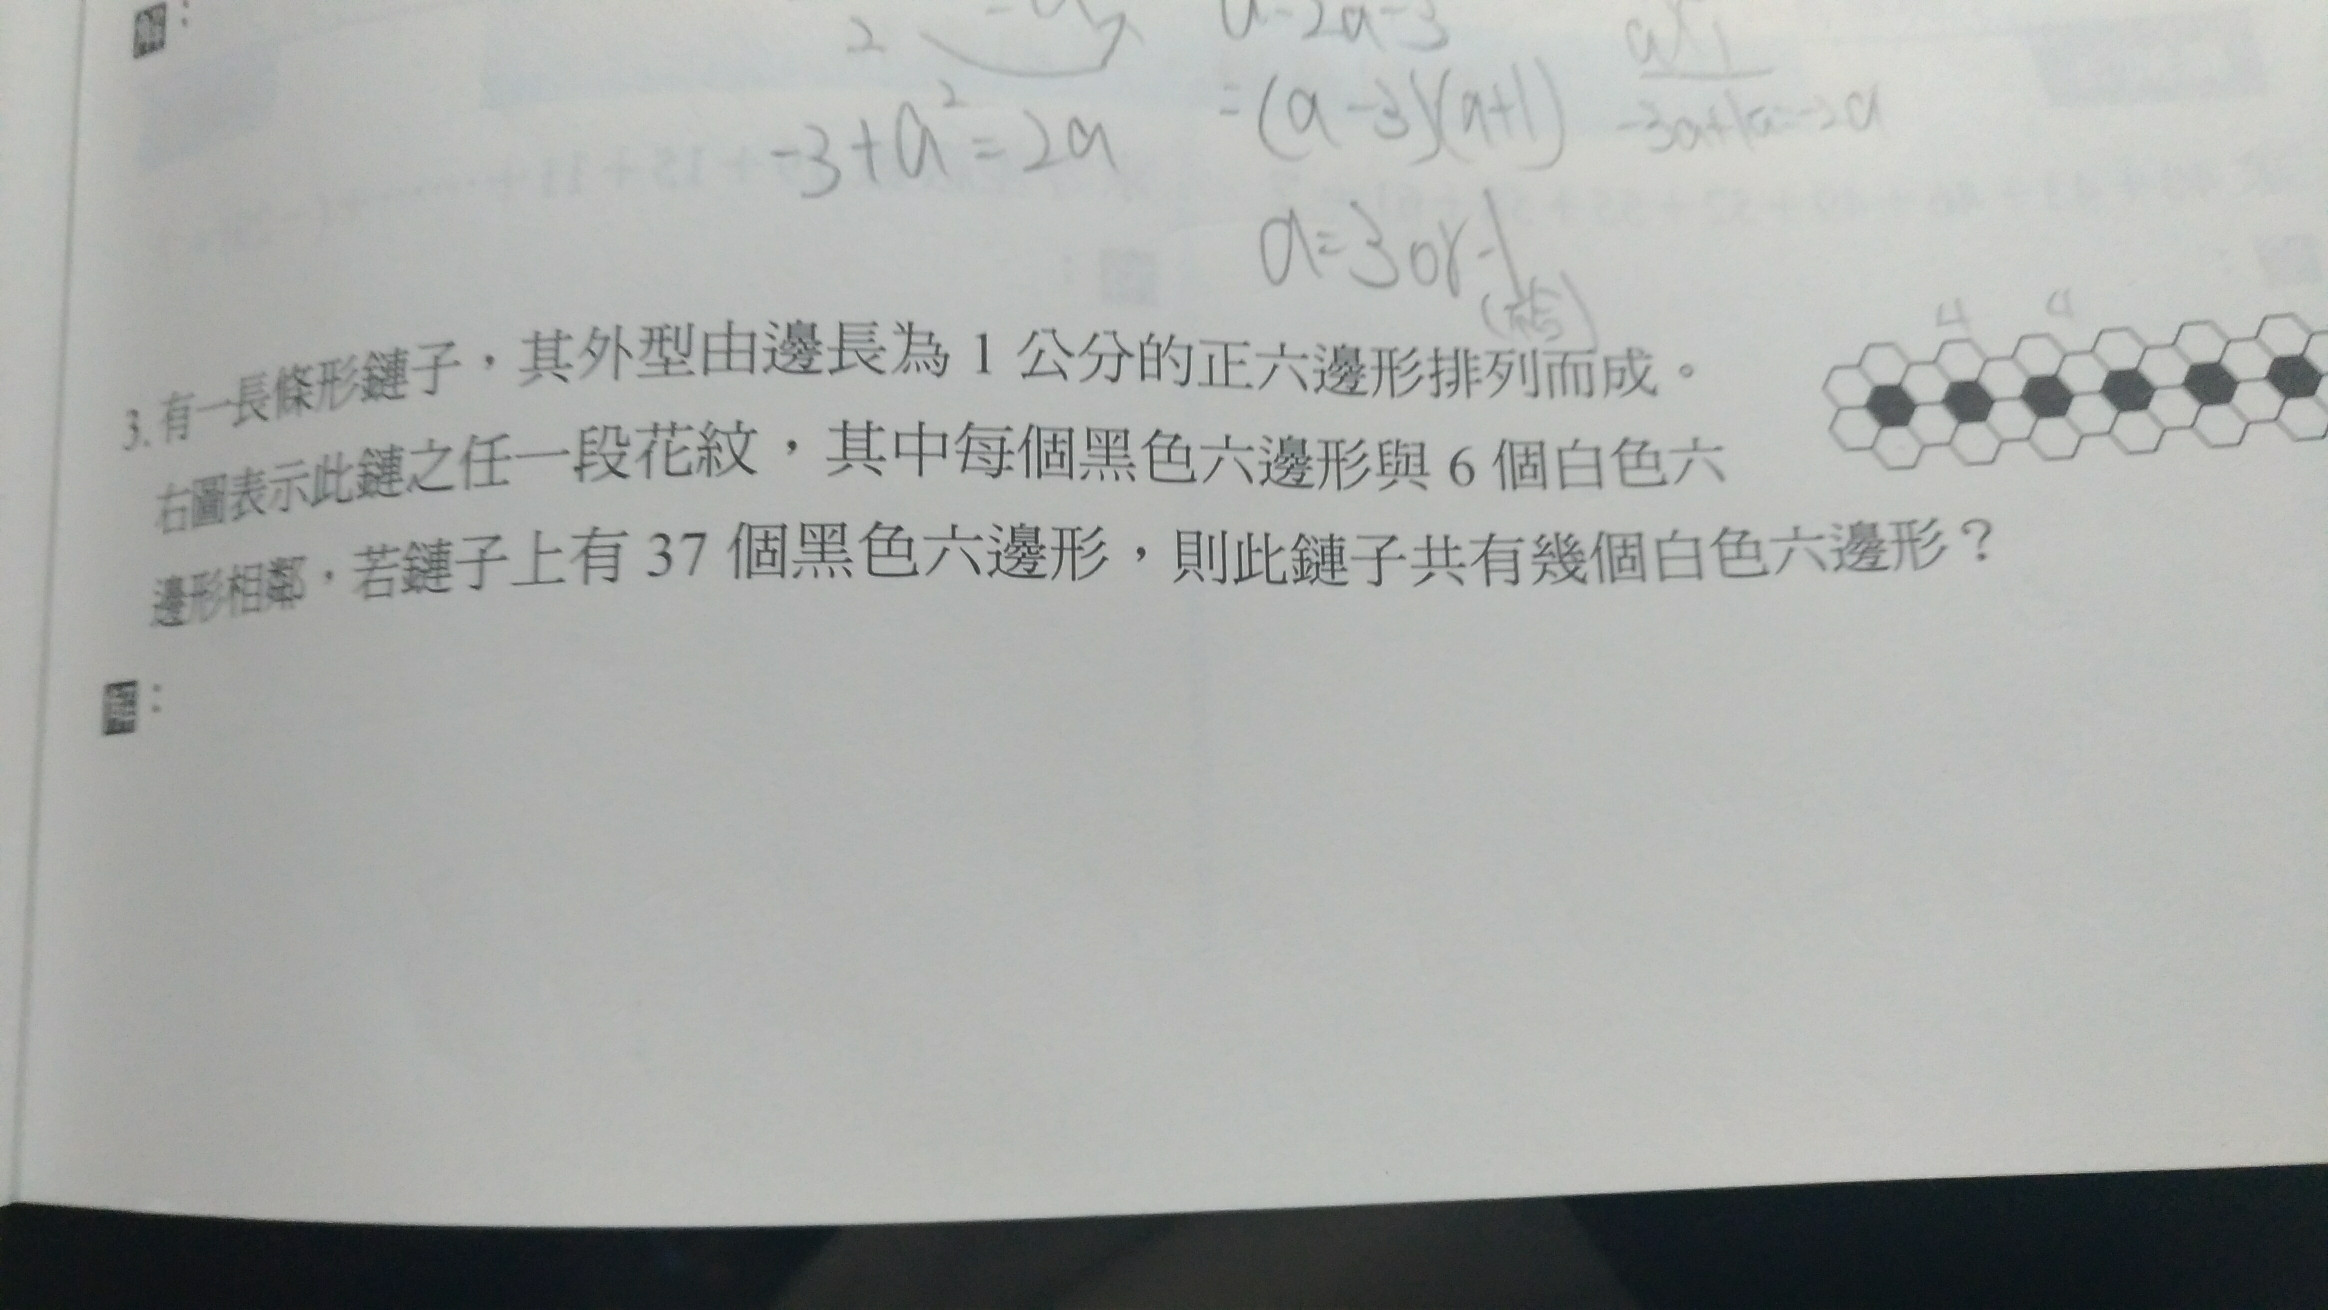 解：
2
a-2a-3
-3+a²=2a
=(a-3)(a+1)
-3a+1a=-2a
a=3 or -1
(不合)
4 4
3.有一長條形鏈子，其外型由邊長為 1 公分的正六邊形排列而成。
右圖表示此鏈之任一段花紋，其中每個黑色六邊形與 6 個白色六
邊形相鄰，若鏈子上有 37 個黑色六邊形，則此鏈子共有幾個白色六邊形？
解：